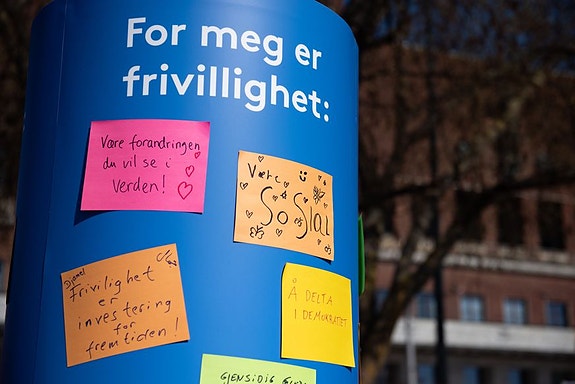 For meg er
frivillighet:
Være forandringen
du vil se i
verden!
Være
SoSial
Frivilighet
er
investering
for
fremtiden!
Å DELTA
I DEMOKRATIET
GJENSIDIG